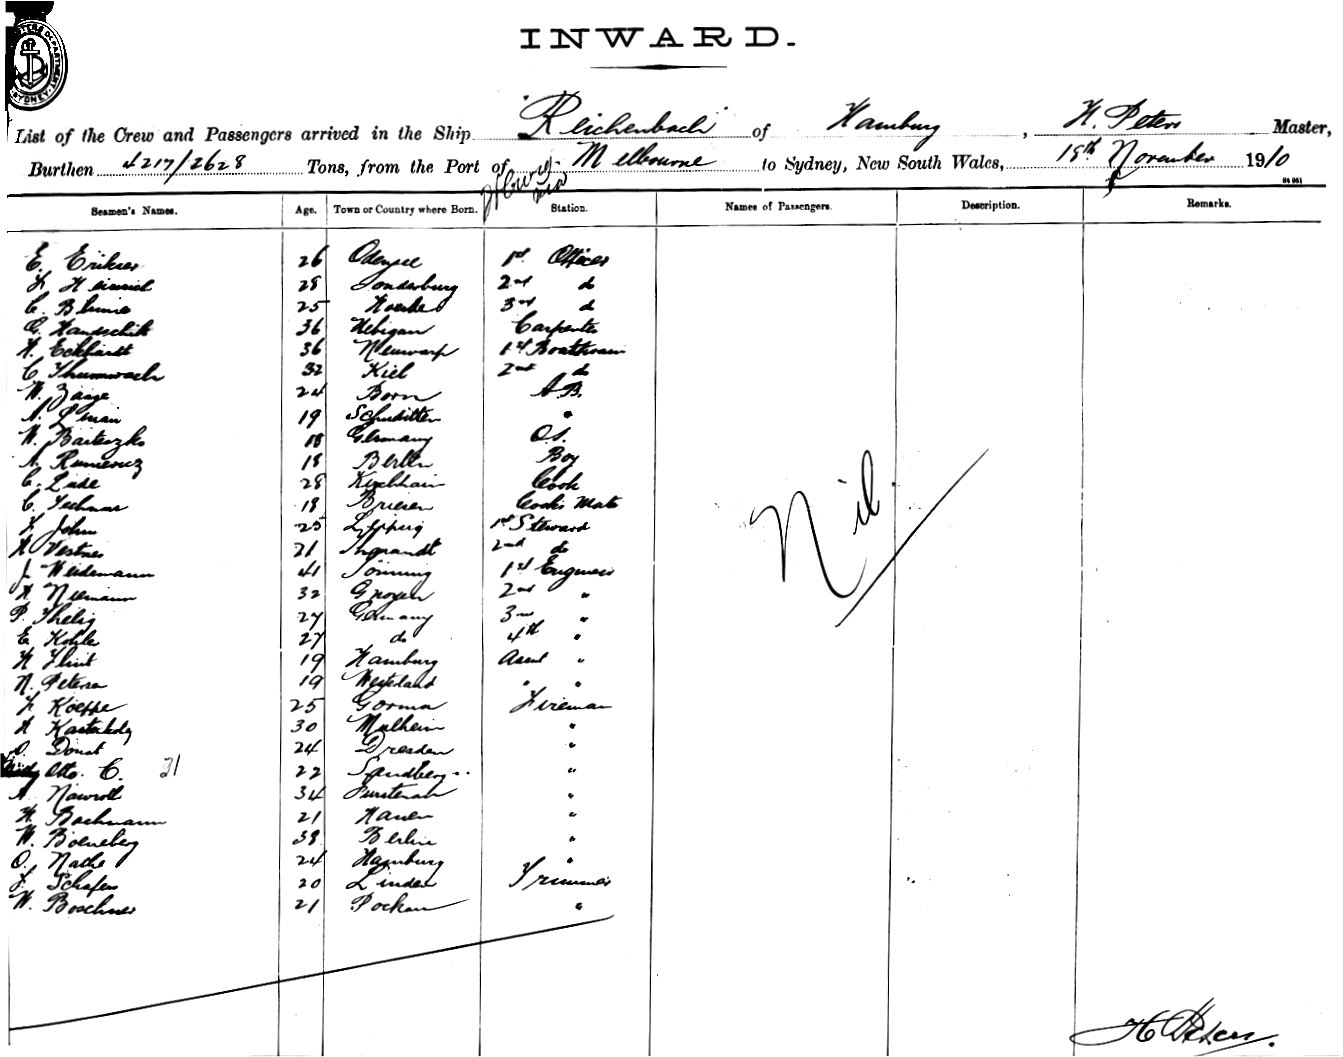 INWARD.
List of the Crew and Passengers arrived in the Ship "Reichenbach" of Hamburg, H. Peters Master,
Burthen 4217/2628 Tons, from the Port of Melbourne to Sydney, New South Wales, 18th November 1910
Seamen's Names. Age. Town or Country where Born. Station. Names of Passengers. Description. Remarks.
E. Erikson 26 Odensee 1st Officer
28 Sonderburg 2nd do
C. Blume 25 3rd do
36 Carpenter
H. Eckhardt 36 Neuwarp 1st Boatswain
C. 32 Kiel 2nd do
W. Zange 24 Born A.B.
A. 19 "
W. Barteczko 18 Germany O.S.
A. 18 Berlin Boy
C. 28 Kirchhain Cook
C. 18 Briesen Cooks Mate
F. John 25 Leipzig 1st Steward
H. Vestner 21 2nd do
J. Weidemann 41 Tönning 1st Engineer
H. Niemann 32 Gnoyen 2nd "
P. Thelig 27 Germany 3rd "
E. Kohle 27 do 4th "
H. Flint 19 Hamburg Asst "
N. Petersen 19 Westerland " "
F. Koeppe 25 Gorma Fireman
30 Mulheim "
O. Donat 24 Dresden "
Otto. C. 21 22 Sandberg "
A. Nawroth 34 Furstenau "
H. Bachmann 21 "
W. Boeneberg 38 Berlin "
O. Nathe 24 Hamburg "
F. Schafer 20 Linden Trimmer
W. Boschner 21 Pockau "
Nil
H Peters.